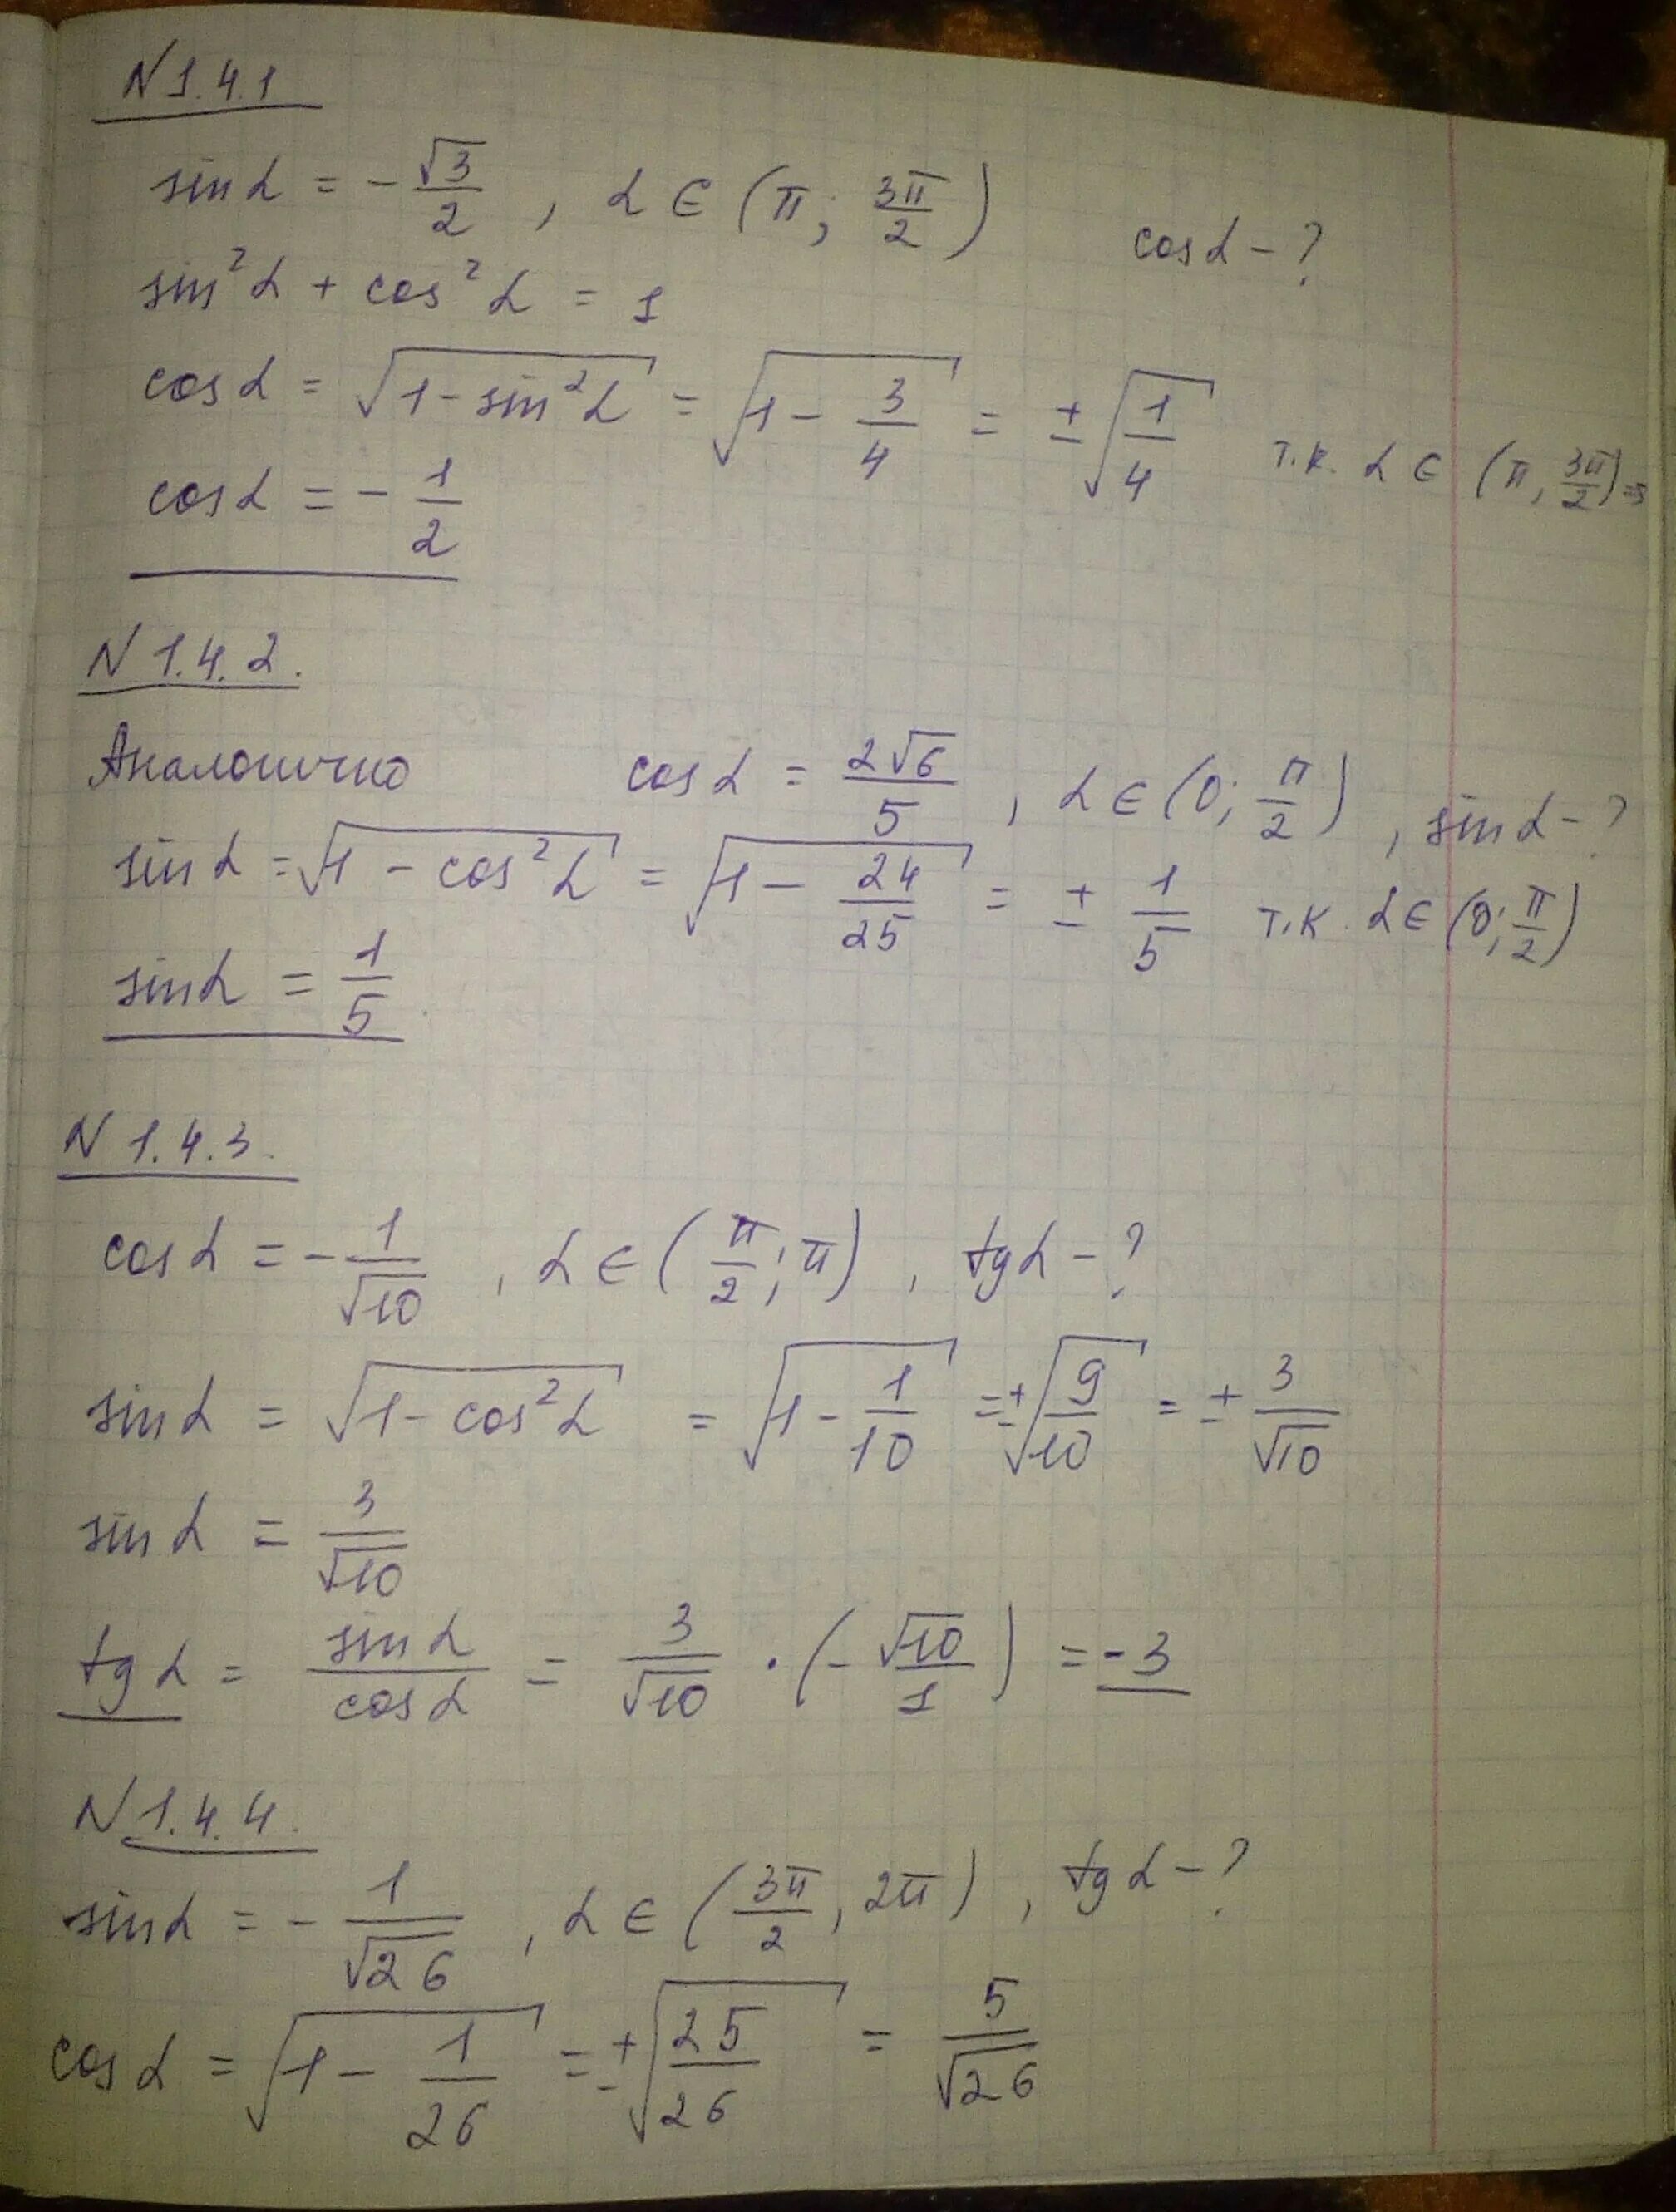 N 1.4.1
sin α = -√3/2 , α ∈ (π; 3π/2) cos α - ?
sin²α + cos²α = 1
cos α = √(1 - sin²α) = √(1 - 3/4) = ± √(1/4) т.к. α ∈ (π, 3π/2) ⇒
cos α = - 1/2
N 1.4.2.
Аналогично cos α = 2√6/5 , α ∈ (0; π/2) , sin α - ?
sin α = √(1 - cos²α) = √(1 - 24/25) = ± 1/5 т.к. α ∈ (0; π/2)
sin α = 1/5
N 1.4.3.
cos α = - 1/√10 , α ∈ (π/2; π) , tg α - ?
sin α = √(1 - cos²α) = √(1 - 1/10) = ± √(9/10) = ± 3/√10
sin α = 3/√10
tg α = sin α/cos α = 3/√10 · (- √10/1) = -3
N 1.4.4.
sin α = - 1/√26 , α ∈ (3π/2, 2π) , tg α - ?
cos α = √(1 - 1/26) = ± √(25/26) = 5/√26